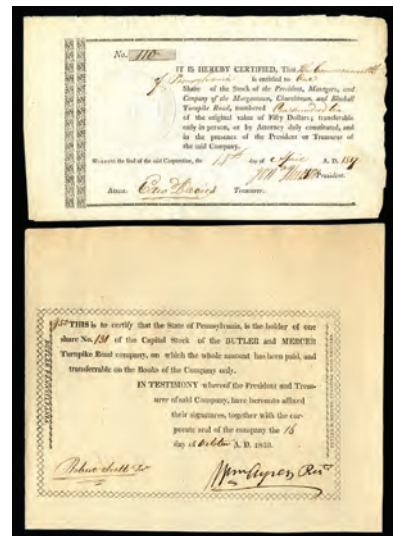 No. 110
IT IS HEREBY CERTIFIED, That the Commonwealth
of Pennsylvania is entitled to One
Share of the Stock of the President, Managers, and
Company of the Morgantown, Churchtown, and Blueball
Turnpike Road, numbered One hundred ten
of the original value of Fifty Dollars; transferable
only in person, or by Attorney duly constituted, and
in the presence of the President or Treasurer of
the said Company.
WITNESS the Seal of the said Corporation, the 14th day of April A. D. 18
President.
ATTEST. Treasurer.
$50 THIS is to certify that the State of Pennsylvania, is the holder of one
share No. 131 of the Capital Stock of the BUTLER and MERCER
Turnpike Road company, on which the whole amount has been paid, and
transferrable on the Books of the Company only.
IN TESTIMONY whereof the President and Treas-
urer of said Company, have hereunto affixed
their signatures, together with the cor-
porate seal of the company the 16
day of October A. D. 1823.
Wm Ayres